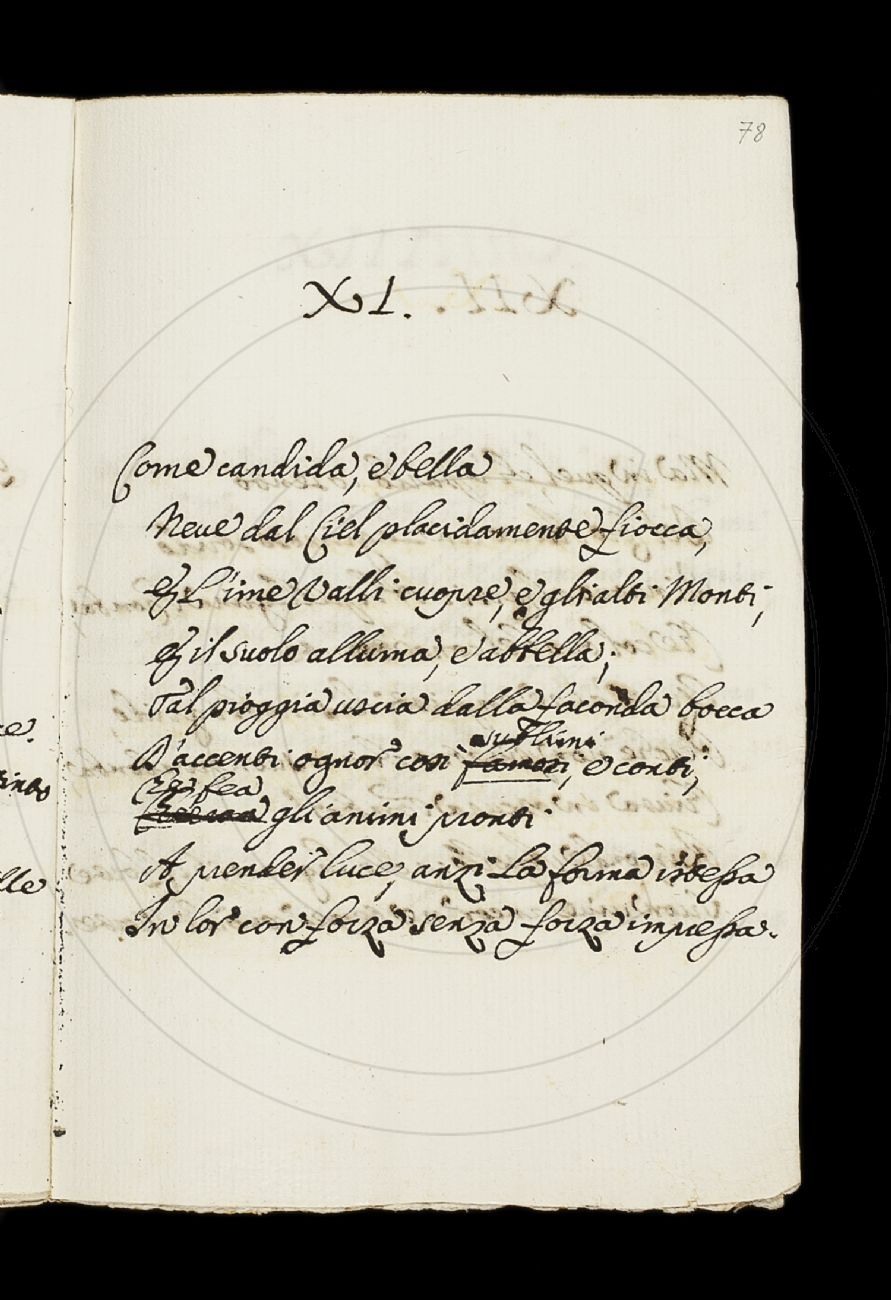 78
XI.
Come candida, e bella
Neve dal Ciel placidamente fiocca,
E l'ime Valli cuopre, e gli alti Monti,
E il suolo alluma, e abbella;
Tal pioggia uscia dalla faconda bocca
sublimi
D'accenti ognor così famosi, e conti,
fea
gli animi pronti
A prender luce, anzi la forma istessa
In lor con forza senza forza impressa.